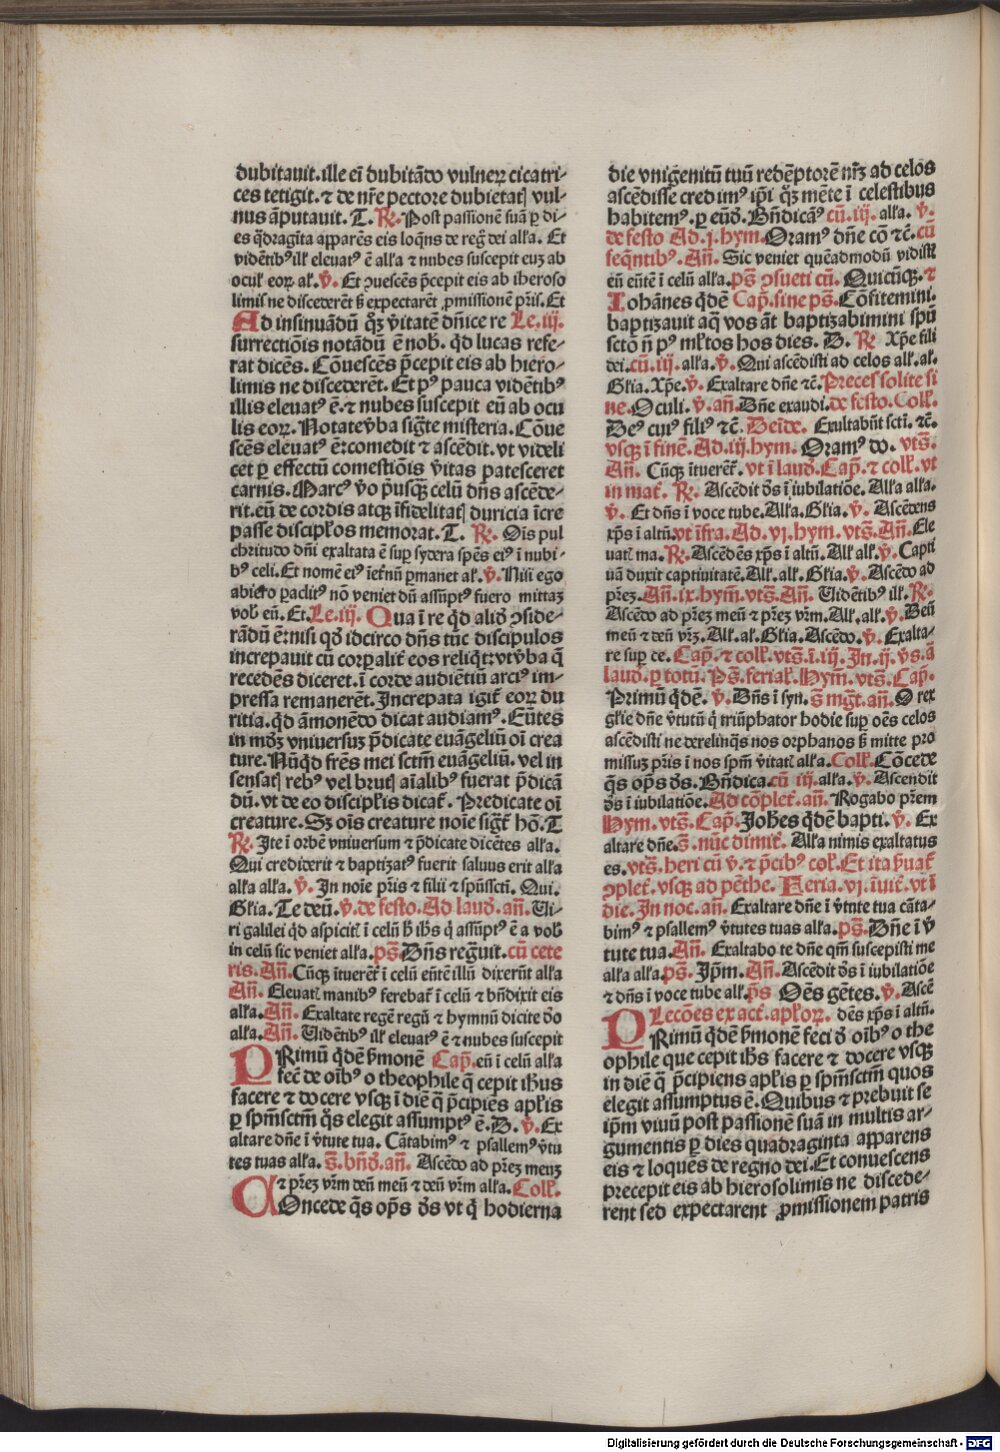 dubitauit. ille eñ dubitãdo vulneꝝ cicatri-
ces tetigit. ⁊ de nr̃e pectore dubietatꝭ vul-
nus ãputauit. T. ℟. Post passionẽ suã ꝑ di-
es q̃dragĩta apparẽs eis loq̃ns de reg̃ dei alľa. Et
vidẽtibꝰ ilľ eleuatꝰ ẽ alľa ⁊ nubes suscepit euꝫ ab
oculꝭ eoꝝ. al̃. ℣. Et ꝯuescẽs p̃cepit eis ab iheroso
limis ne discederẽt ß expectarẽt ꝓmissionẽ pr̃is. Et
Ad insinuãdũ qꝫ v̾itatẽ dñice re Le. iij.
surrectiõis notãdũ ẽ nob̃. qd̾ lucas refe-
rat dicẽs. Cõuescẽs p̃cepit eis ab hiero-
limis ne discederẽt. Et pꝰ pauca vidẽtibꝰ
illis eleuatꝰ ẽ. ⁊ nubes suscepit eũ ab ocu
lis eoꝝ. Notate v̾ba sig̃te misteria. Cõue
scẽs eleuatꝰ ẽ: comedit ⁊ ascẽdit. vt videli
cet ꝑ effectũ comestiõis v̾itas patesceret
carnis. Marcꝰ v̾o pusqꝫ celũ dñs ascẽde-
rit. eũ de cordis atqꝫ ĩfidelitatꝭ duricia ĩcre
passe discipl̃os memorat. T. ℟. Ois pul
chritudo dñi exaltata ẽ sup̃ sydera spẽs eiꝰ ĩ nubi-
bꝰ celi. Et nomẽ eiꝰ ĩet̾nũ ꝑmanet al̃. ℣. Nisi ego
abiero ꝑaclitꝰ nõ veniet dũ assũptꝰ fuero mittaꝫ
vob̃ eũ. Et. Le. iij. Qua ĩ re q̃d aliđ ꝯside-
rãdũ ẽ: nisi qđ idcirco dñs tũc discipulos
increpauit cũ corꝑalit̾ eos reliq̃t: vt v̾ba q̃
recedẽs diceret. ĩ corde audiẽtiũ arciꝰ im-
pressa remanerẽt. Increpata igit̾ eoꝝ du
ritia. qđ ãmonẽdo dicat audiamꝰ. Eũtes
in mđꝫ vniuersuꝫ p̃dicate euãgeliũ oĩ crea
ture. Nũqđ fr̃es mei sctm̃ euãgeliũ. vel in
sensatꝭ rebꝰ vel brutꝭ aĩalibꝰ fuerat p̃dicã
dũ. vt de eo discipľis dicat̾. Predicate oĩ
creature. Sꝫ oĩs creature noĩe sig̃t̾ hõ. T
℟. Ite ĩ orbẽ vniuersum ⁊ p̃dicate dicẽtes alľa.
Qui crediderit ⁊ baptizatꝰ fuerit saluus erit alľa
alľa alľa. ℣. In noĩe pr̃is ⁊ filii ⁊ spũsscti̾. Qui.
Glľia. Te deũ. ℣. de festo. Ad lauđ. añ. Ui-
ri galilei qđ aspicitꝭ ĩ celũ ß ihs̃ q̃ assũptꝰ ẽ a vob̃
in celũ sic veniet alľa. ps̃. Dñs regnũit. cũ cete
ris. Añ. Cũqꝫ ĩtuerẽt̾ ĩ celũ eũtẽ illũ dixerũt alľa
Añ. Eleuatꝭ manibꝰ ferebat̾ ĩ celũ ⁊ bñdixit eis
alľa. Añ. Exaltate regẽ regũ ⁊ hymnũ dicite đo
alľa. Añ. Uidẽtibꝰ ilľ eleuatꝰ ẽ ⁊ nubes suscepit
PRimũ q̃dẽ s̾monẽ Cap̃. eũ ĩ celũ alľa
feci̾ de oĩbꝰ o theophile q̃ cepit ihũs
facere ⁊ docere vsqꝫ ĩ diẽ q̃ p̃cipiẽs apľis
ꝑ spm̃sctm̃ q̃s elegit assumptꝰ ẽ. D. ℣. Ex
altare dñe ĩ v̾tute tua. Cãtabimꝰ ⁊ psallemꝰ v̾tu
tes tuas alľa. s̃. bñđ. añ. Ascẽdo ad pr̃eꝫ meuꝫ
⁊ pr̃eꝫ vr̃m deũ meũ ⁊ deũ vr̃m alľa. Colľ.
COncede q̃s op̃s đs vt q̃ hodierna
die vnigenitũ tuũ redẽptorẽ nr̃ꝫ ad celos
ascẽdisse credimꝰ ip̃i qꝫ mẽte ĩ celestibus
habitemꝰ. ꝑ eũđ. Bñdicãꝰ cũ. iij. alľa. ℣.
de festo Ad. j. hym. Oramꝰ dñe cõ ⁊c̃. cũ
seq̃ntibꝰ. Añ. Sic veniet quẽadmodũ vidistꝭ
eũ eũtẽ ĩ celũ alľa. ps̃ ꝯsueti cũ. Quicũqꝫ. ⁊
Iohãnes q̃dẽ Cap̃. sine ps̃. Cõfitemini.
baptizauit aq̃ vos ãt baptizabimini spũ
sctõ ñ pꝰ ml̾tos hos dies. D. ℟. Xp̃e fili
dei. cũ. iij. alľa. ℣. Qui ascẽdisti ad celos alľ. al̃.
Glľia. Xp̃e. ℣. Exaltare dñe ⁊c̃. Preces solite si
ne. Oculi. ℣. añ. Dñe exaudi. de festo. Colľ.
Deꝰ cuiꝰ filiꝰ ⁊c̃. Deĩde. Exultabũt scti̾. ⁊c̃.
vsqꝫ ĩ finẽ. Ad. iij. hym. Oramꝰ do. vts̃.
Añ. Cũqꝫ ĩtuerẽt̾. vt ĩ lauđ. Cap̃. ⁊ colľ. vt
in mat̾. ℟. Ascẽdit đs ĩ iubilatiõe. Alľa alľa.
℣. Et dñs ĩ voce tube. Alľa. Glľia. ℣. Ascẽdens
xp̃s ĩ altũ. vt ĩfra. Ad. vj. hym. vts̃. Añ. Ele
uatꝭ ma. ℟. Ascẽdẽs xp̃s ĩ altũ. Alľ alľ. ℣. Capti
uã duxit captiuitatẽ. Alľ. alľ. Glľia. ℣. Ascẽdo ad
pr̃eꝫ. Añ. ix. hym̃. vts̃. Añ. Uidẽtibꝰ ilľ. ℟.
Ascẽdo ad pr̃eꝫ meũ ⁊ pr̃eꝫ vr̃m. Alľ. alľ. ℣. Deũ
meũ ⁊ deũ vr̃ꝫ. Alľ. al̃. Glľia. Ascẽdo. ℣. Exalta-
re sup̃ ce. Cap̃. ⁊ colľ. vts̃. ĩ. iij. In. ij. v̾s. ã
lauđ. ꝑ totũ. Ps̃. feriaľ. Hym̃. vts̃. Cap̃.
Primũ q̃dẽ. ℣. Dñs ĩ syn. s̃ mg̃t̾. añ. O rex
glľie dñe v̾tutũ q̃ triũphator hodie sup̃ oẽs celos
ascẽdisti ne derelinq̃s nos orphanos ß mitte pro
missuꝫ pr̃is ĩ nos spm̃ v̾itatꝭ alľa. Colľ. Cõcede
q̃s op̃s đs. Bñdica. cũ iij. alľa. ℣. Ascendit
đs ĩ iubilatiõe. Ad cõplet̾. añ. Rogabo pr̃em
Hym. vts̃. Cap̃. Joh̃es q̃dẽ bapti. ℣. Ex
altare dñe. s̃. nũc dimit̾. Alľa nimis exaltatus
es. vts̃. heri cũ ℣. ⁊ p̃cibꝰ colľ. Et ita s̾uat̾
ꝯplet̾. vsqꝫ ad pẽthe. Feria. vj. ĩuit̾. vt ĩ
die. In noc. añ. Exaltare dñe ĩ v̾tute tua cãta-
bimꝰ ⁊ psallemꝰ v̾tutes tuas alľa. ps̃. Dñe ĩ v̾
tute tua. Añ. Exaltabo te dñe qm̃ suscepisti me
alľa alľa. ps̃. Ip̃m. Añ. Ascẽdit đs ĩ iubilatiõe
⁊ dñs ĩ voce tube alľ. ps̃ Oẽs gẽtes. ℣. Ascẽ
Lecões ex act̾. apľoꝝ. dẽs xp̃s ĩ altũ.
PRimũ q̃dẽ s̾monẽ feci đ oĩbꝰ o the
ophile que cepit ihs̃ facere ⁊ docere vsqꝫ
in diẽ q̃ p̃cipiens apľis ꝑ spm̃sctm̃ quos
elegit assumptus ẽ. Quibus ⁊ prebuit se
ip̃m viuũ post passionẽ suã in multis ar-
gumentis ꝑ dies quadraginta apparens
eis ⁊ loquẽs de regno dei. Et conuescens
precepit eis ab hierosolimis ne discede-
rent sed expectarent ꝓmissionem patris
Digitalisierung gefördert durch die Deutsche Forschungsgemeinschaft - DFG